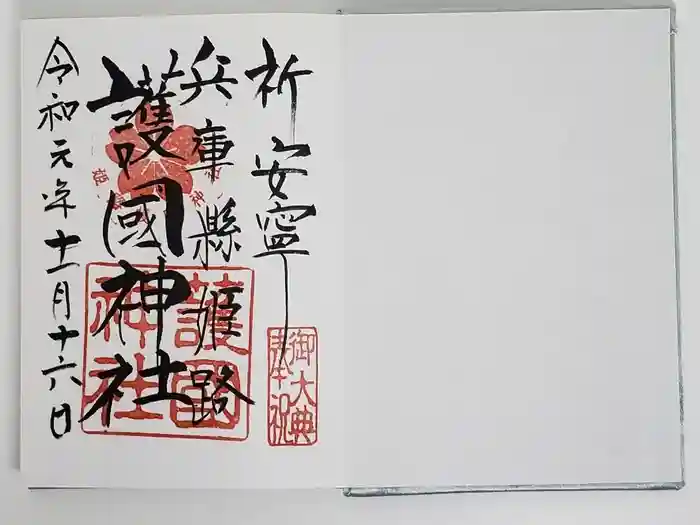 祈安寧
御大典
奉祝
兵庫縣姫路
護國神社
護國
神社
令和元年十一月十六日